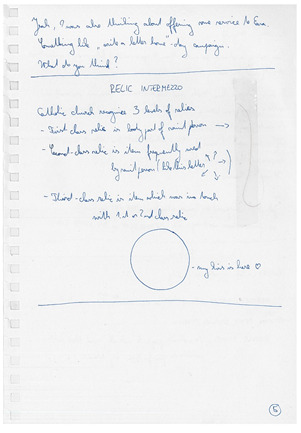 Yeah, I was also thinking about offering some service to
Something like "write a letter home"-day campaign.
What do you think?
RELIC INTERMEZZO
Catholic church recognize 3 levels of relics
- First class relic is body part of saint person →
- Second-class relic is item frequently used
by saint person (like this letter ?
- Third-class relic is item which was in touch
with 1st or 2nd class relic
- my kiss is here ♡
5